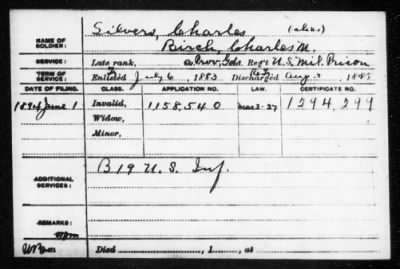 NAME OF SOLDIER: Silvers, Charles (alias)
Birch, Charles M.
SERVICE: Late rank, Prov. Gds. Reg't U.S. Mil. Prison
TERM OF SERVICE: Enlisted July 6, 1883 Discharged Aug. 1885
DATE OF FILING. CLASS. APPLICATION NO. LAW. CERTIFICATE NO.
1894 June 1 Invalid, 1158,540 1294,299
Widow,
Minor,
ADDITIONAL SERVICES: B 19 U.S. Inf.
REMARKS:
Died , 1 , at